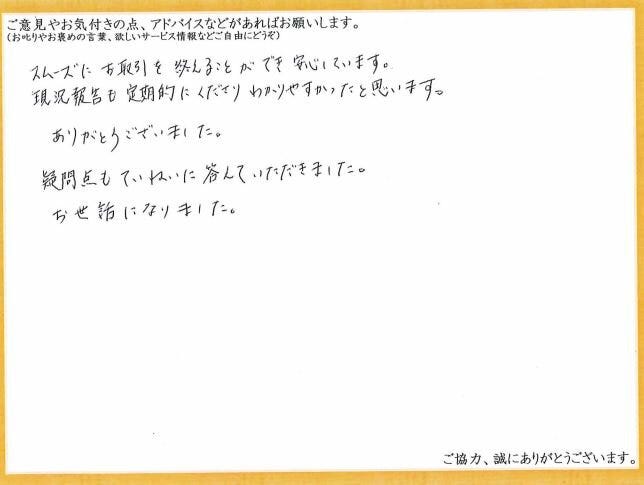 ご意見やお気付きの点、アドバイスなどがあればお願いします。
(お叱りやお褒めの言葉、欲しいサービス情報などご自由にどうぞ)
スムーズに お取引を 終えることが でき 安心しています。
現況報告も 定期的に くださり わかりやすかったと思います。
ありがとうございました。
疑問点も ていねいに 答えて いただきました。
お世話になりました。
ご協力、誠にありがとうございます。